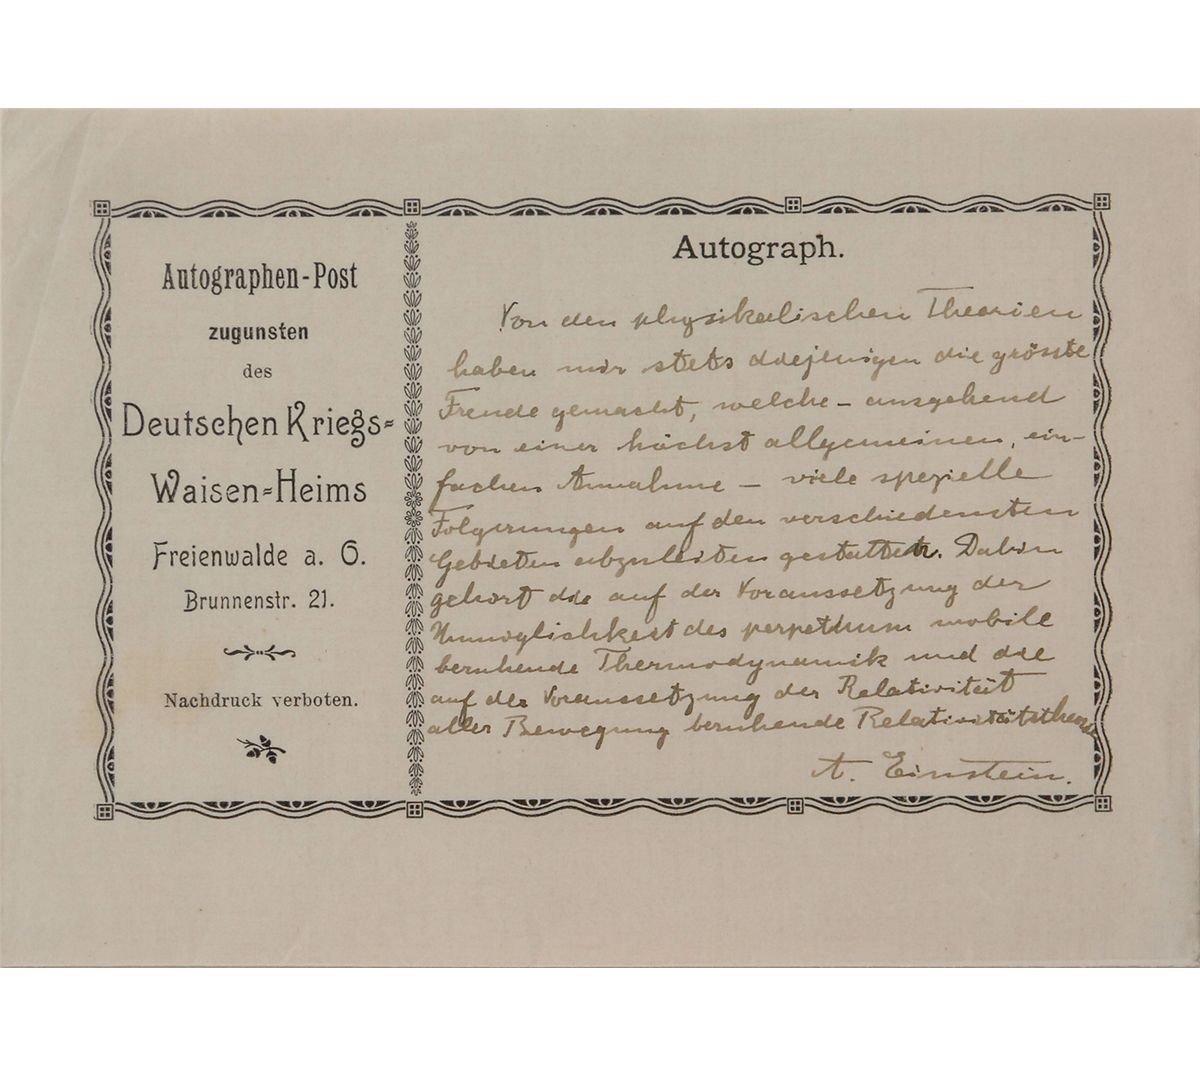 Autographen-Post
zugunsten
des
Deutschen Kriegs-
Waisen-Heims
Freienwalde a. O.
Brunnenstr. 21.
Nachdruck verboten.
Autograph.
Von den physikalischen Theorien
haben mir stets diejenigen die grösste
Freude gemacht, welche – ausgehend
von einer höchst allgemeinen, ein-
fachen Annahme – viele spezielle
Folgerungen auf den verschiedensten
Gebieten abzuleiten gestatten. Dahin
gehört die auf der Voraussetzung der
Unmöglichkeit des perpethum mobile
beruhende Thermodynamik und die
auf der Voraussetzung der Relativität
aller Bewegung beruhende Relativitätstheorie
A. Einstein.